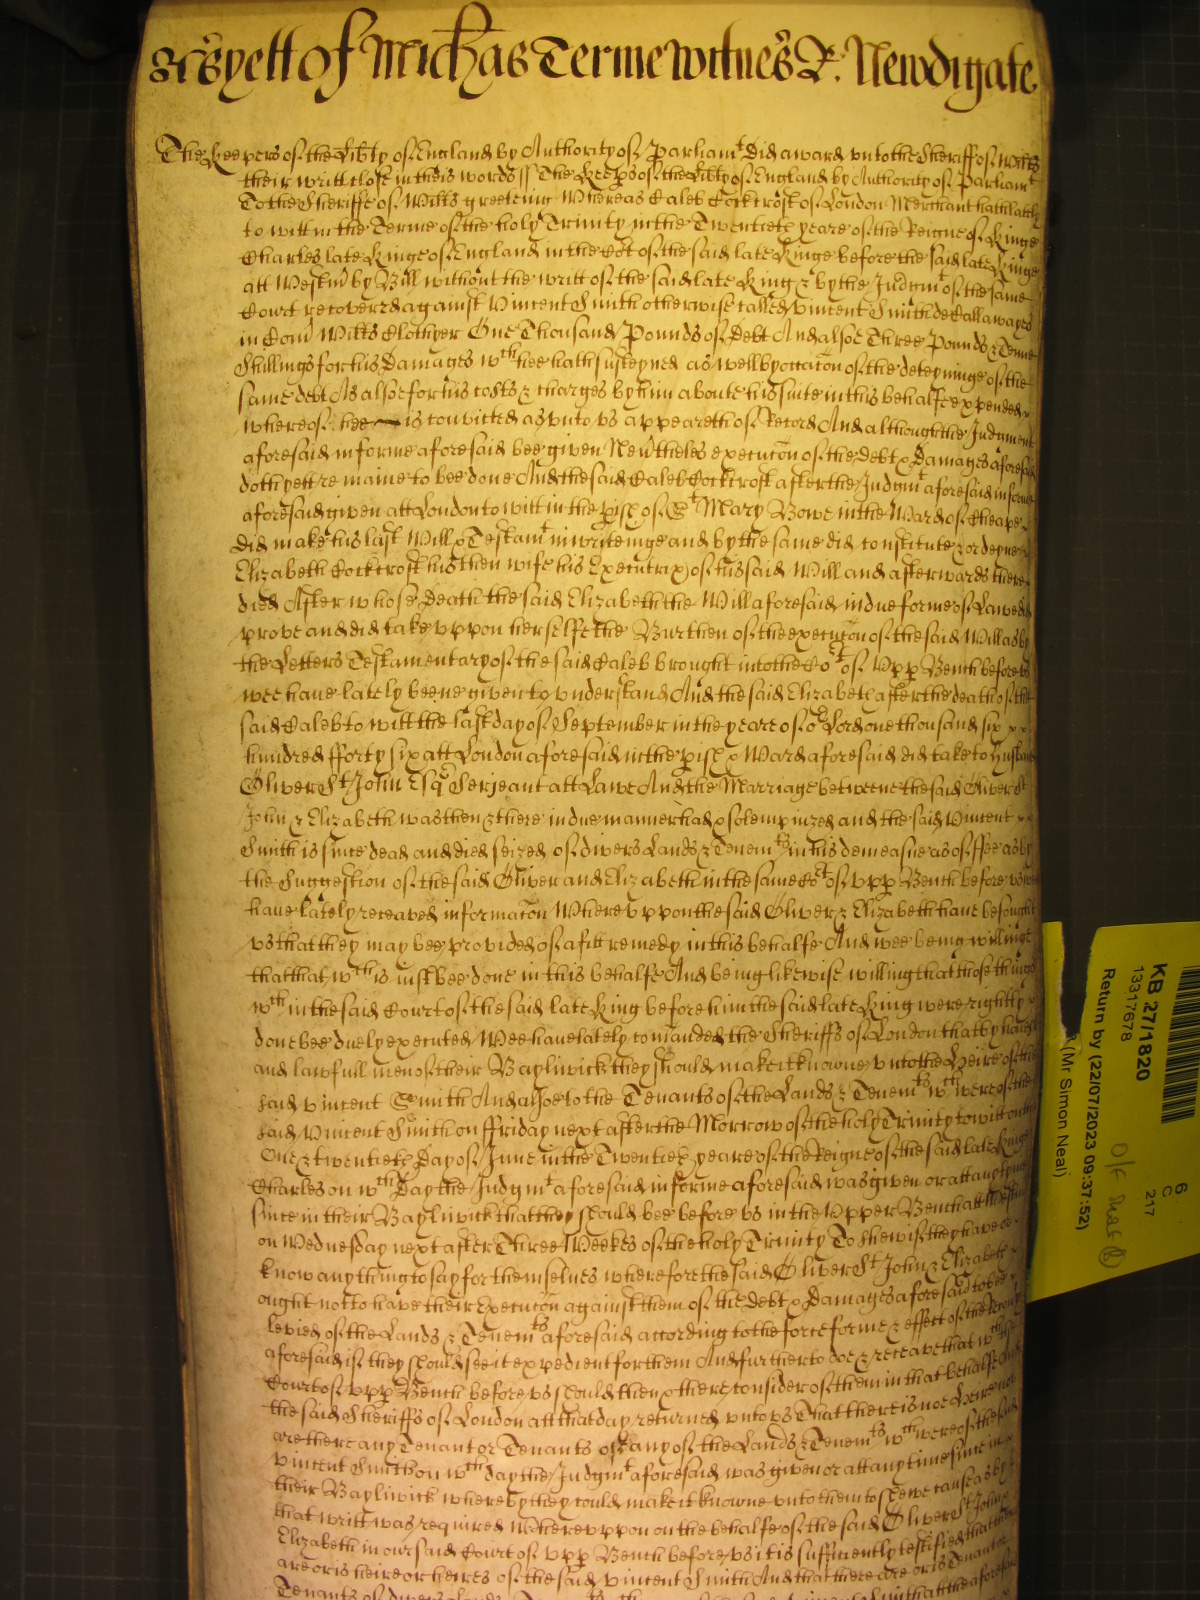 As yett of Mich̄as Terme Witnes R: Newdigate
The Keepers of the Lib̄ty of England by Authority of Parliamt Did award vnto the Sheriff of Wilts
their writt close in theis words // The Keep̄s of the Lib̄ty of England by Authority of Parliamt
To the Sheriffe of Wilts greeteing Whereas Caleb Cockcroft of London Merchant hath lately
to witt in the Terme of the holy Trinity in the Twentieth yeare of the Reigne of Kinge
Charles late Kinge of England in the Cōt of the said late Kinge before the said late Kinge
att Westm̄ by Bill without the writt of the said late King & by the Judgmt of the same
Court recovered against Vincent Smith otherwise called Vincent Smith de Callawayes
in Com̄ Wilts Clothyer One Thousand Pounds of Debt And alsoe Three Pounds & Tenne
Shillings for his Damages wch hee hath susteyned as well by occac̄on of the deteyninge of the
same debt As alsoe for his costs & charges by him about his suite in this behalfe expended
whereof hee is convicted as vnto vs appeareth of Record And although the Judgment
aforesaid in forme aforesaid bee given Nev̄theles execuc̄on of the Debt & Damages aforesaid
doth yett remaine to bee done And the said Caleb Cockcroft after the Judgmt aforesaid in forme
aforesaid given att London to witt in the p̄ish of St Mary Bowe in the Ward of Cheape
did make his last Will & Testamt in writeinge and by the same did constitute & ordeyne
Elizabeth Cockcroft his then wife his Executrix of his said Will and afterwards there
died After whose Death the said Elizabeth the Will aforesaid in due forme of Lawe did
prove and did take vppon her selfe the Burthen of the execuc̄on of the said Will as by
the Letters Testamentary of the said Caleb brought into the Cot of Vpp̄ Bench before vs
wee haue lately beene given to vnderstand And the said Elizabeth after the death of the
said Caleb to witt the last day of September in the yeare of or Lord one thousand six
hundred fforty six att London aforesaid in the p̄ish & Ward aforesaid did take to Husband
Oliver St John Esqr Serjeant att Lawe And the Marriage betweene the said Oliver St
John & Elizabeth was then & there in due manner had & solempnized and the said Vincent
Smith is since dead and died seized of divers Lands & Tenemts in his demeasne as of ffee as by
the Suggestion of the said Oliver and Elizabeth in the same Cot of vpp̄ Bench before vs wee
haue lately receaved informac̄on Wherevppon the said Oliver & Elizabeth haue besought
vs that they may bee provided of a fitt remedy in this behalfe And wee being willinge
that that wch is iust bee done in this behalfe And being likewise willing that those things
wch in the said Court of the said late King before him the said late King were rightly
done bee duely executed Wee haue lately com̄anded the Sheriffs of London that by honest
and lawfull men of their Bayliwick they should make it knowne vnto the Heire of the
said Vincent Smith And alsoe to the Tenants of the Lands & Tenemts wch were of the
said Vincent Smith on Friday next after the Morrow of the holy Trinity to witt on the
One & twentieth Day of June in the Twentieth yeare of the Reigne of the said late King
Charles on wch Day the Judgmt aforesaid in forme aforesaid was given or att any tyme
since in their Bayliwick that they should bee before vs in the Vpper Bench att Westm̄
on Wednesday next after Three Weekes of the holy Trinity To shew if they have or
know any thing to say for themselues wherefore the said Oliver St John & Elizabeth
ought not to have their Execuc̄on against them of the Debt & Damages aforesaid to bee
levied of the Lands & Tenemts aforesaid according to the force forme & effect of the Recoūy
aforesaid if they should see it expedient for them And further to doe & receave that wch the
Court of vpp̄ Bench before vs should then & there consider of them in that behalfe And
the said Sheriffs of London att that day returned vnto vs That there is not Heire nor
are there any Tenant or Tenants of any of the Lands & Tenemts wch were of the said
Vincent Smith on wch day the Judgmt aforesaid was given or att any time since in
their Bayliwick whereby they could make it knowne vnto them to shewe cause as by
that writt was required Wherevppon on the behalfe of the said Oliver St John &
Elizabeth in our said Court of vpp̄ Bench before vs it is sufficiently testified that there
are or is heire or heires of the said Vincent Smith And that there are or is Tenant or
Tenants of divers Lands
KB 27/1820
13317678
Return by (22/07/2023 09:37:52)
(Mr Simon Neal)
6
C
217